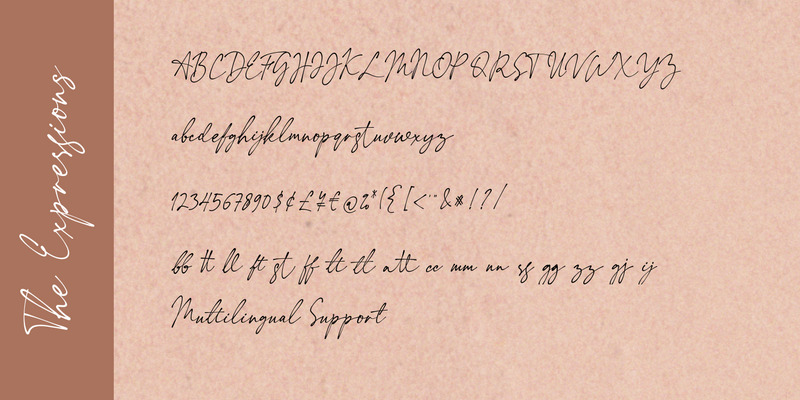 The Expressions
ABCDEFGHIJKLMNOPQRSTUVWXYZ
abcdefghijklmnopqrstuvwxyz
1234567890$¢£¥€@%*({[<¨&#!?/
bb tt ll ft st ff lt tl att cc mm nn ss gg zz gj ij
Multilingual Support